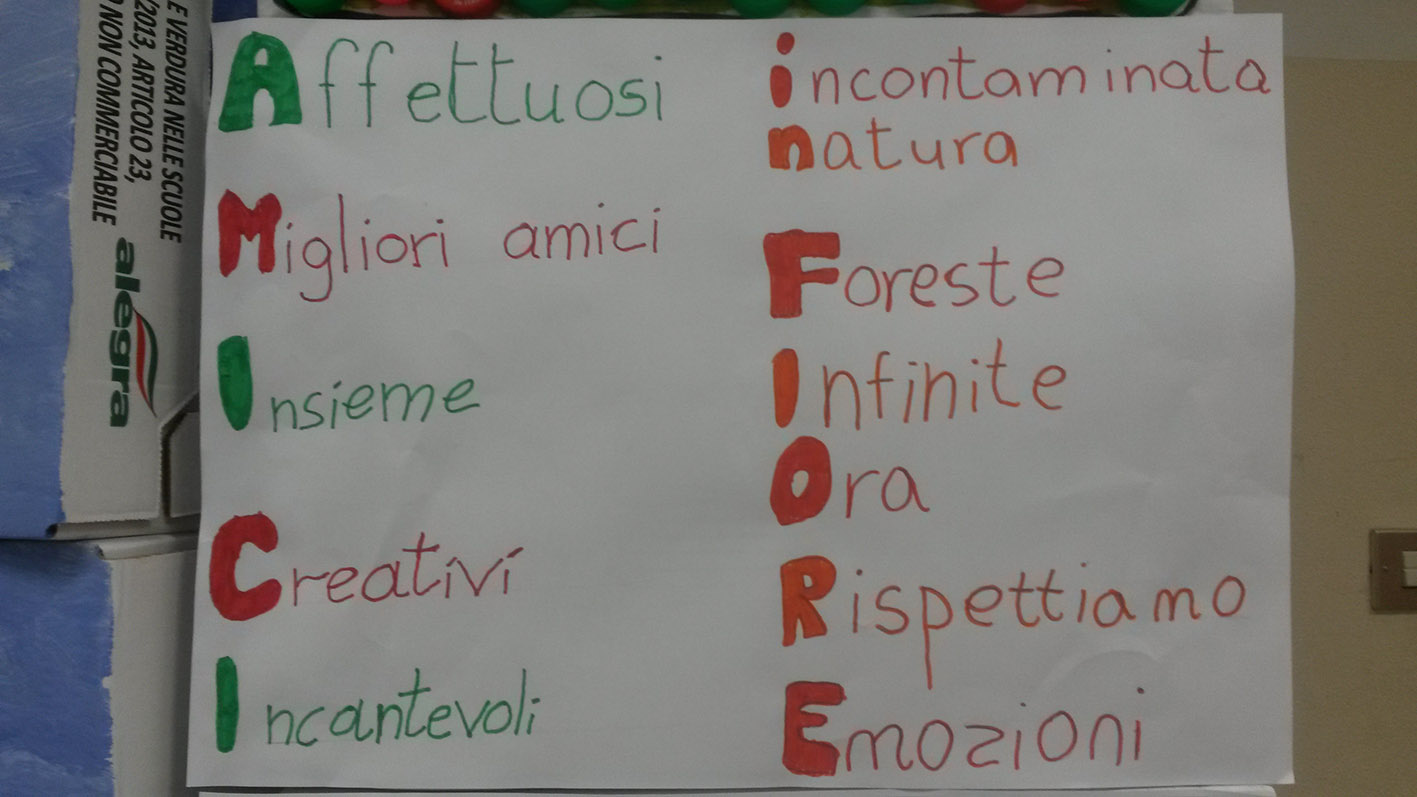 E VERDURA NELLE SCUOLE
/2013, ARTICOLO 23,
NON COMMERCIABILE
alegra
Affettuosi
Migliori amici
Insieme
Creativi
Incantevoli
incontaminata
natura
Foreste
Infinite
Ora
Rispettiamo
Emozioni